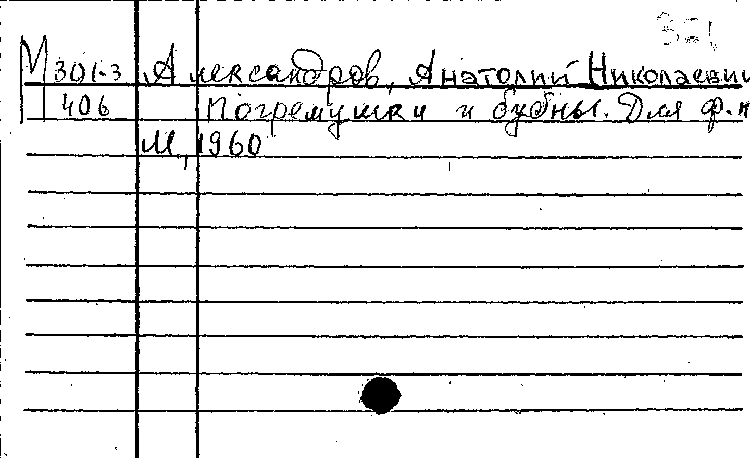 М 301-3 Александров, Анатолий Николаевич
406 Погремушки и бубны. Для ф.п
М., 1960